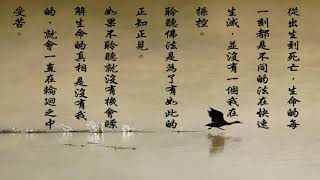 從出生到死亡，生命的每
一刻都是不同的法在快速
生滅，並沒有一個我在
操控。
聆聽佛法是為了有如此的
正知正見。
如果不聆聽就沒有機會瞭
解生命的真相是沒有我
的，就會一直在輪迴之中
受苦。